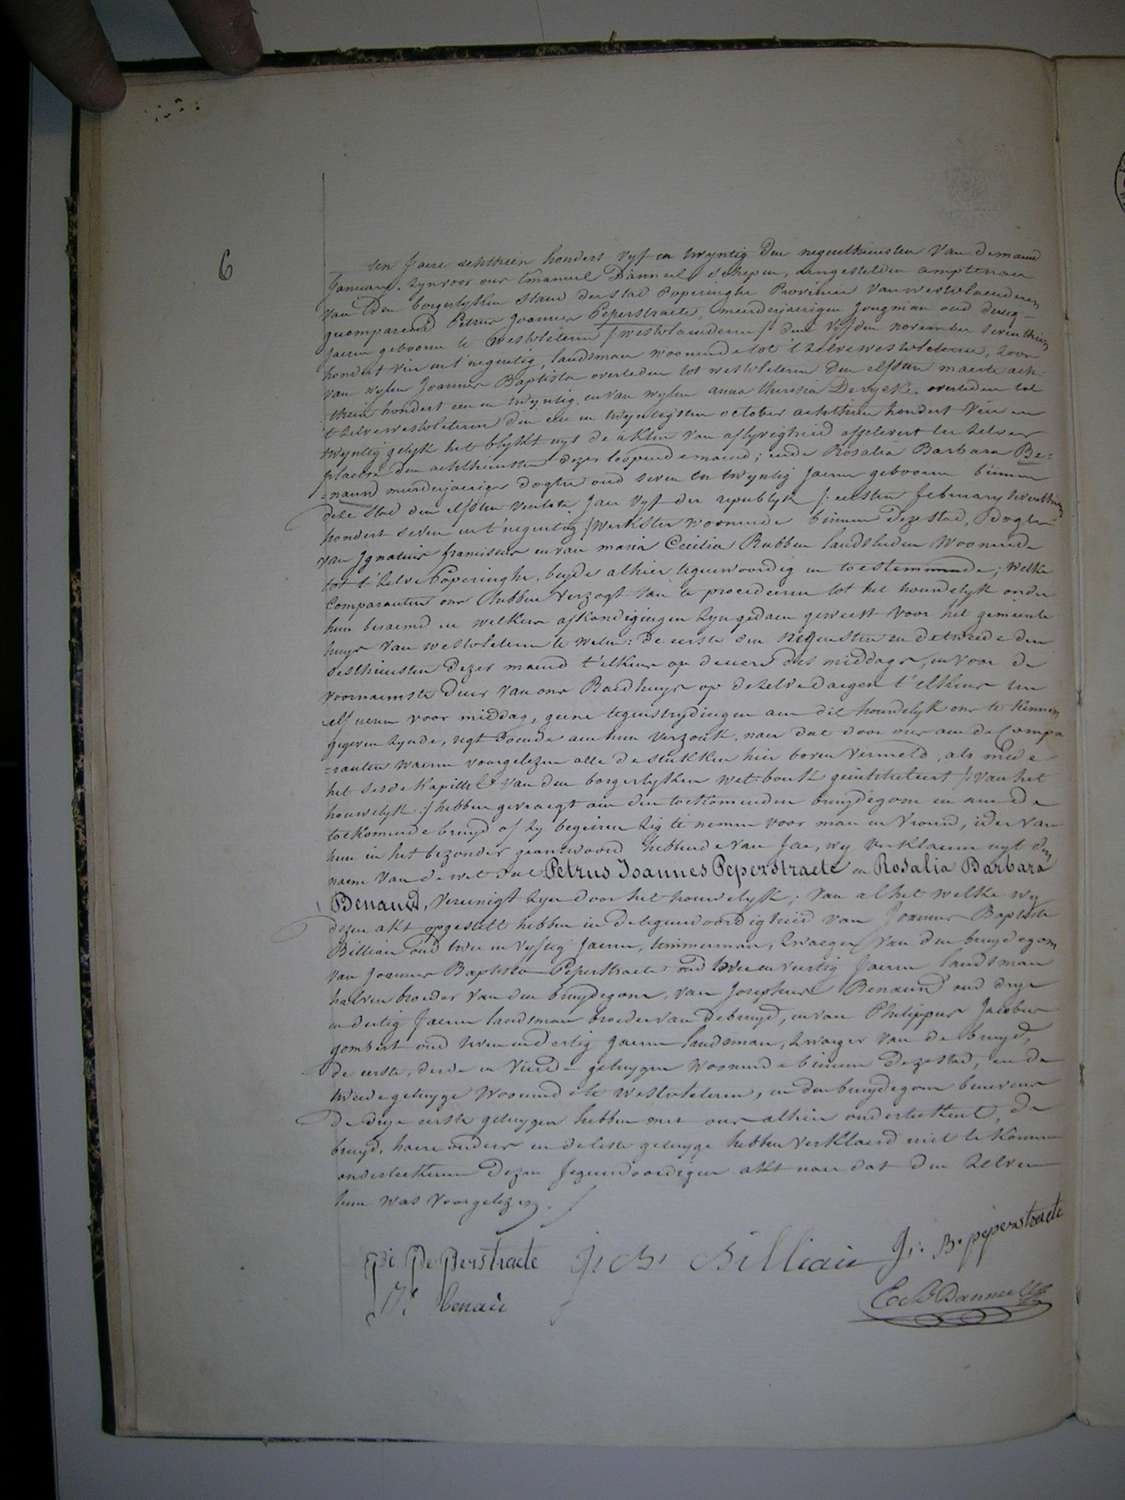 6
den Jaere achthien hondert vyf en twyntig den negenthiensten van de maend
January, zyn voor ons Emanuel Danneel, schepen, aengestelden amptenaer
van den borgerlyken stand der stad Poperinghe Provincie van westvlaenderen
gecompareerd Petrus Joannes Peperstraete, meerderjaerigen jongman oud dertig
Jaeren gebooren te westvleteren /: westvlaenderen :/ den vyfden november seventhien
hondert vier en t'negentig, landsman woonende tot 't zelve westvleteren, zoon
van wylen Joannes Baptista overleden tot westvleteren den elfsten maerte ach-
thien hondert een en twyntig, en van wylen anna theresia Deryck, overleden tot
t'zelve westvleteren den een en twyntigsten october achthien hondert vier en
twyntig gelyk het blykt uyt de akten van aflyvigheid afgelevert ter zelver
plaetse den achthiensten dezer loopende maend; ende Rosalia Barbara Be-
naund meerderjaerige dogter oud seven en twyntig Jaeren gebooren binnen
deze stad den elfsten ventose Jaer vyf der republyk /: eersten february seventhien
hondert seven en t'negentig :/ werkster woonende binnen deze stad, Dogter
van Ignatius franciscus en van maria Cecilia Rubben landslieden woonende
tot t'zelve Poperinghe, beyde alhier tegenwoordig en toestemmende; welke
Comparanten ons hebben verzogt van te procederen tot het houwelyk onder
hun beraemd en welkers afkondigingen zyn gedaen geweest voor het gemeente
huys van westvleteren te weten: de eerste den negensten en de tweede den
sesthiensten dezer maend t'elkens op den eere des middags, en voor de
voornaemste deur van ons Raedhuys op de zelve daegen t'elkens ten
elf ueren voor middag, geene tegenstrydingen aen dit houwelyk ons te kennen
gegeven zynde, regt doende aen hun verzoek, naer dat door ons aen de Compa
-ranten waeren voorgelezen alle de stukken hier boven vermeld, als mede
het sesde kapittel van den borgerlyken wet-boek geintituleert /: van het
houwelyk :/ hebben gevraegt aen den toekomenden bruydegom en aen de
toekomende bruyd of zy begeiren zig te nemen voor man en vrouw, ider van
hun in het bezonder geantwoord hebbende van Jae, wy verklaeren uyt den
naem van de wet dat Petrus Joannes Peperstraete en Rosalia Barbara
Benaund, vereenigt zyn door het houwelyk; van al het welke wy
dezen akt opgestelt hebben in de tegenwoordigheid van Joannes Baptiste
Billiau oud twee en vyftig Jaeren, timmerman, zwaeger van den bruydegom
van Joannes Baptista Peperstraete oud twee en veertig Jaeren landsman
halven broeder van den bruydegom, van Josephus Benaund oud drye
en dertig Jaeren landsman broeder van de bruyd, en van Philippus Jacobus
gombert oud twee en dertig jaeren landsman, zwaeger van de bruyd,
de eerste, derde en vierde getuygen woonende binnen deze stad, en de
tweede getuyge woonende te westvleteren, en den bruydegom benevens
de drye eerste getuygen hebben met ons alhier onderteekent, de
bruyd, haere ouders en de leste getuyge hebben verklaerd niet te konnen
onderteekenen dezen tegenwoordigen akt naer dat den zelven
hun was voorgelezen.
pe. Peperstraete J. B. Billiaie J. B. peperstraete
Js benaie E. Danneel